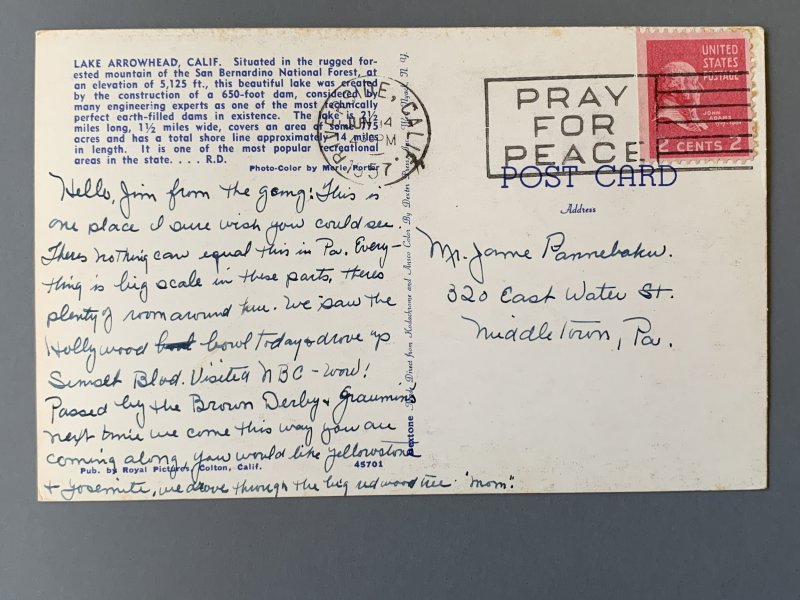 LAKE ARROWHEAD, CALIF. Situated in the rugged for-
ested mountain of the San Bernardino National Forest, at
an elevation of 5,125 ft., this beautiful lake was created
by the construction of a 650-foot dam, considered by
many engineering experts as one of the most technically
perfect earth-filled dams in existence. The lake is 2½
miles long, 1½ miles wide, covers an area of some 975
acres and has a total shore line approximately 14 miles
in length. It is one of the most popular recreational
areas in the state. . . . R.D.
Photo-Color by Merle Porter
Hello, Jim from the gang: This is
one place I sure wish you could see.
Theres nothing can equal this in Pa. Every-
thing is big scale in these parts, theres
plenty of room around here. We saw the
Hollywood bowl today & drove up
Sunset Blvd. Visited NBC - wow!
Passed by the Brown Derby & Graumins
next time we come this way you are
coming along, you would like Yellowstone
& Yosemite, we drove through the big redwood tree. "Mom".
Pub. by Royal Pictures, Colton, Calif.
45701
Dextone Made Direct from Kodachrome and Ansco Color By Dexter Press, N. Y.
CALIF.
JUN 14
PM
1957
PRAY
FOR
PEACE
UNITED
STATES
POSTAGE
JOHN
ADAMS
2 CENTS 2
POST CARD
Address
Mr. Jame Pannebaker.
320 East Water St.
Middletown, Pa.